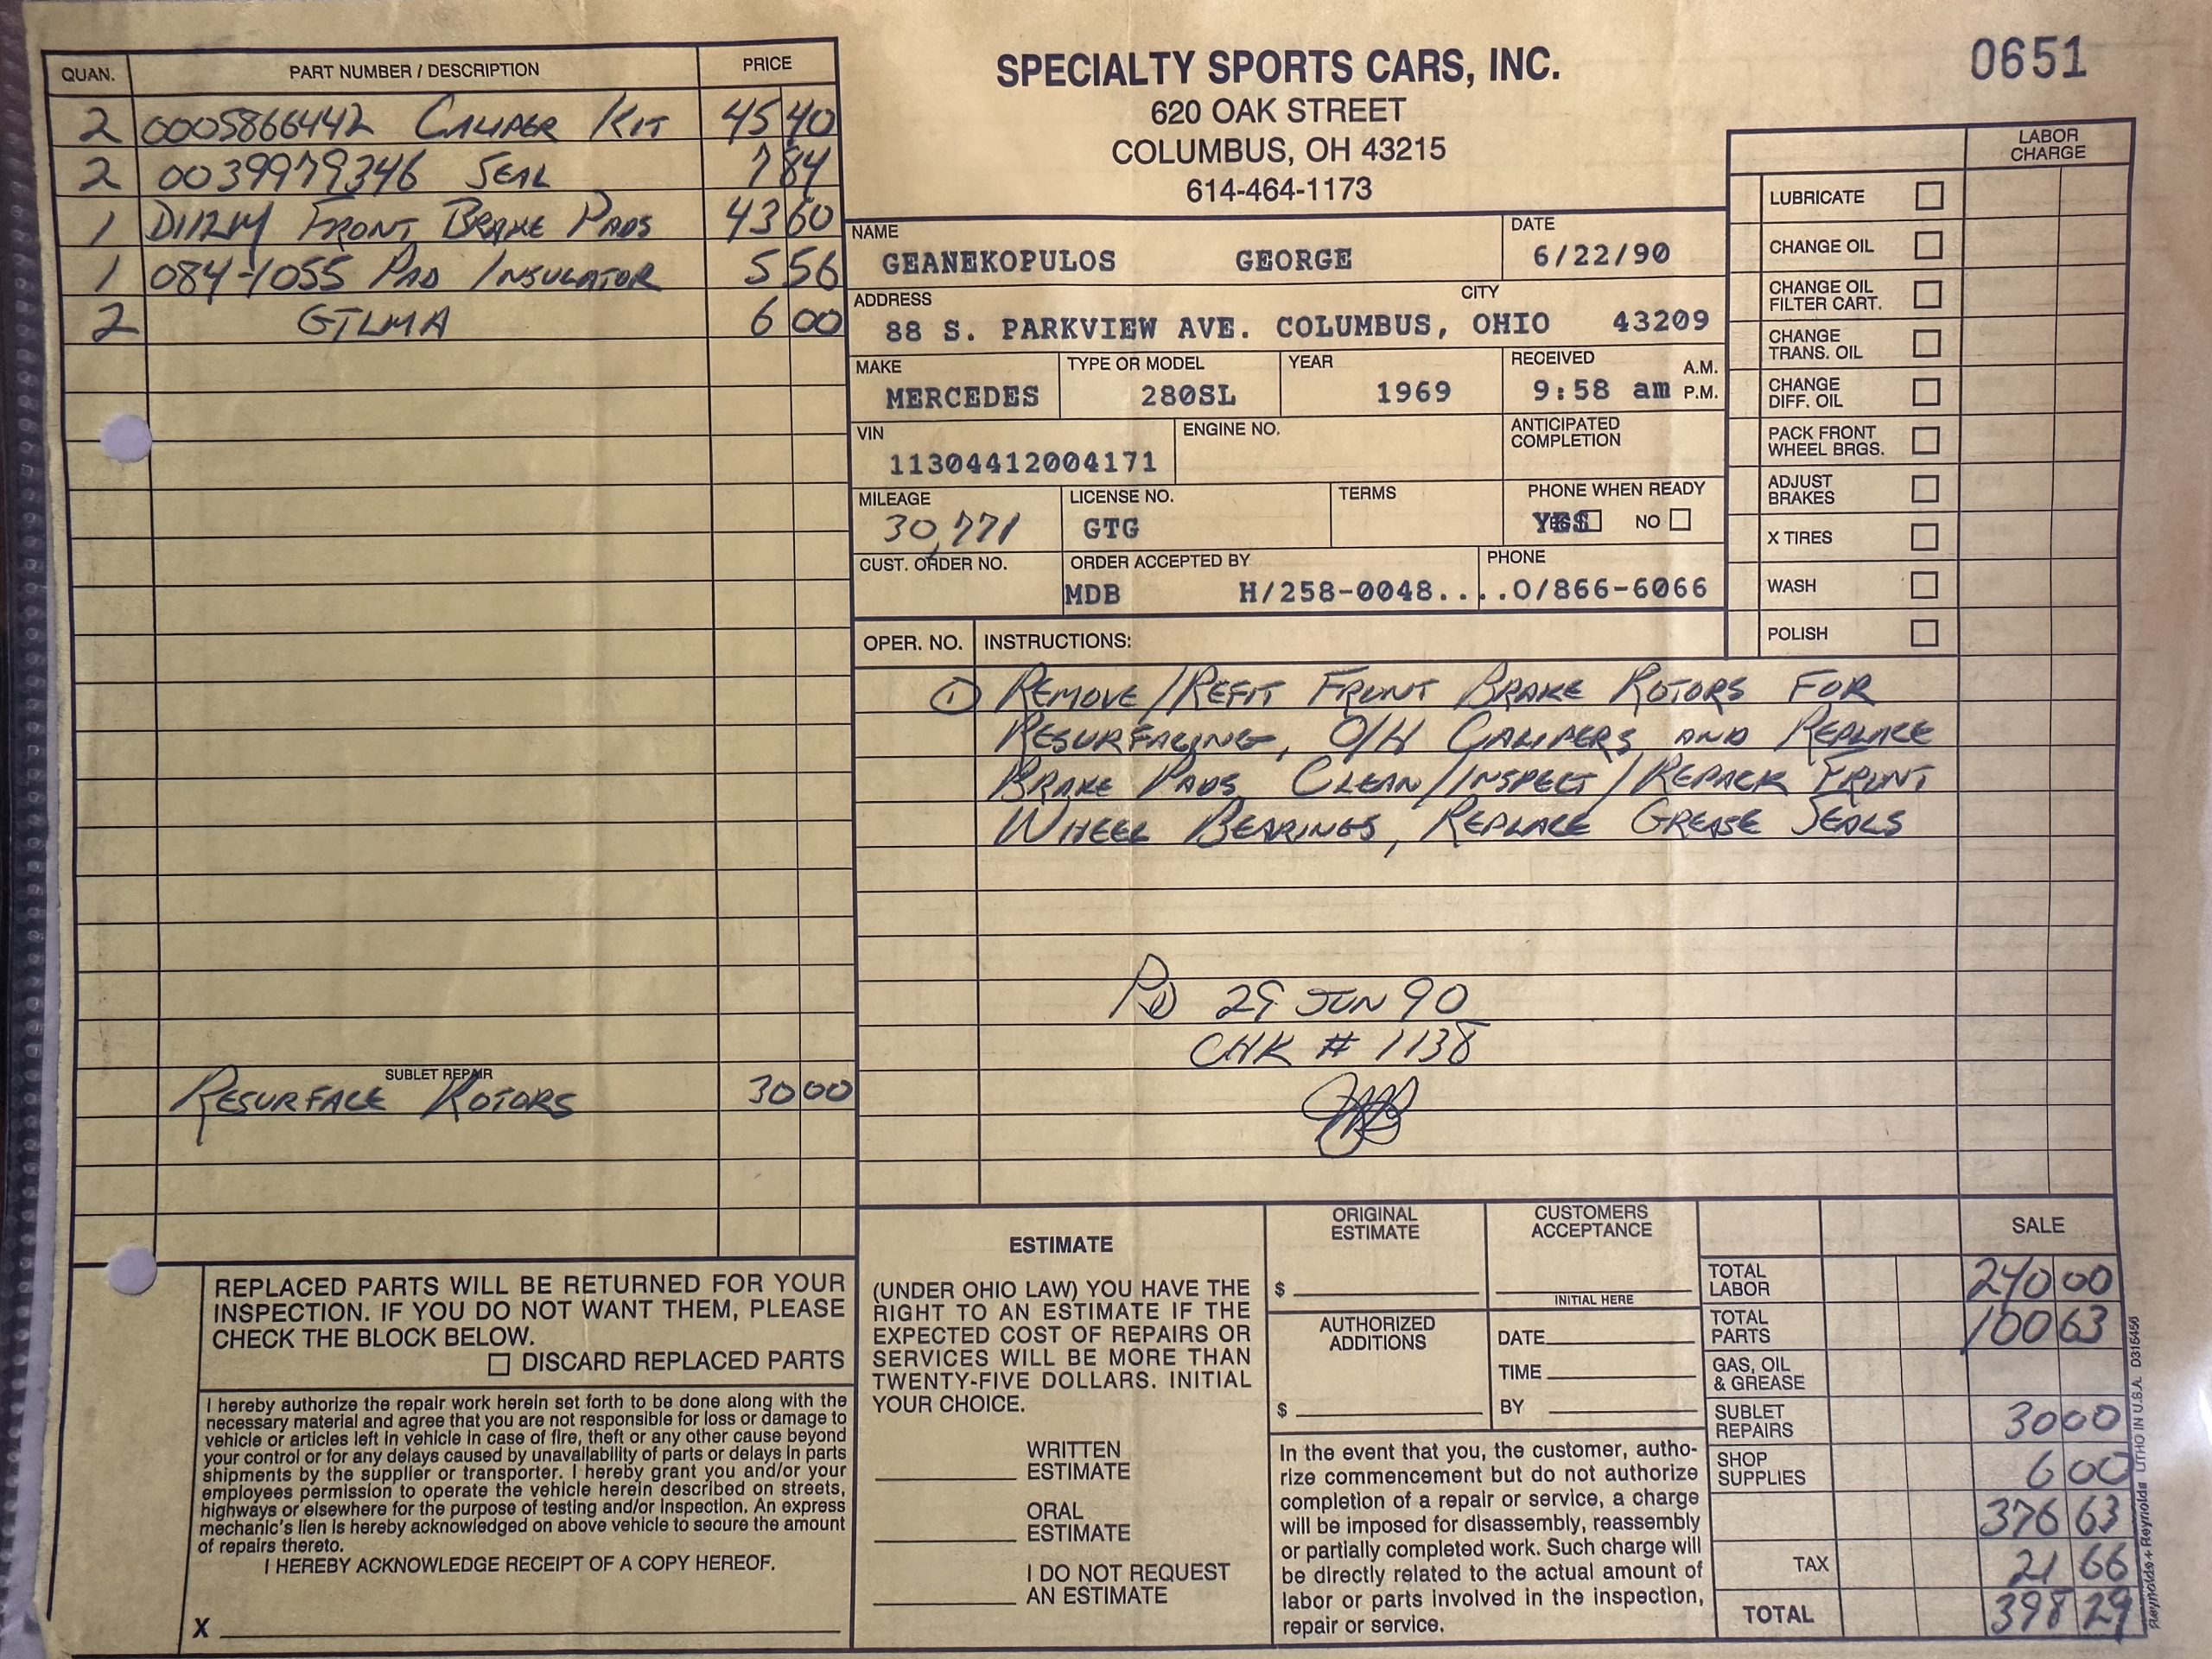 QUAN. PART NUMBER / DESCRIPTION PRICE
2 0005866442 CALIPER KIT 45 40
2 0039979346 SEAL 7 84
1 D112M FRONT BRAKE PADS 43 60
1 084-1055 PAD INSULATOR 5 56
2 GTLMA 6 00
SUBLET REPAIR
RESURFACE ROTORS 30 00
REPLACED PARTS WILL BE RETURNED FOR YOUR
INSPECTION. IF YOU DO NOT WANT THEM, PLEASE
CHECK THE BLOCK BELOW.
DISCARD REPLACED PARTS
I hereby authorize the repair work herein set forth to be done along with the
necessary material and agree that you are not responsible for loss or damage to
vehicle or articles left in vehicle in case of fire, theft or any other cause beyond
your control or for any delays caused by unavailability of parts or delays in parts
shipments by the supplier or transporter. I hereby grant you and/or your
employees permission to operate the vehicle herein described on streets,
highways or elsewhere for the purpose of testing and/or inspection. An express
mechanic's lien is hereby acknowledged on above vehicle to secure the amount
of repairs thereto.
I HEREBY ACKNOWLEDGE RECEIPT OF A COPY HEREOF.
X
SPECIALTY SPORTS CARS, INC.
620 OAK STREET
COLUMBUS, OH 43215
614-464-1173
0651
NAME DATE
GEANEKOPULOS GEORGE 6/22/90
ADDRESS CITY
88 S. PARKVIEW AVE. COLUMBUS, OHIO 43209
MAKE TYPE OR MODEL YEAR RECEIVED A.M.
MERCEDES 280SL 1969 9:58 am P.M.
VIN ENGINE NO. ANTICIPATED
COMPLETION
11304412004171
MILEAGE LICENSE NO. TERMS PHONE WHEN READY
30,771 GTG YES NO
CUST. ORDER NO. ORDER ACCEPTED BY PHONE
MDB H/258-0048....O/866-6066
LABOR
CHARGE
LUBRICATE
CHANGE OIL
CHANGE OIL
FILTER CART.
CHANGE
TRANS. OIL
CHANGE
DIFF. OIL
PACK FRONT
WHEEL BRGS.
ADJUST
BRAKES
X TIRES
WASH
POLISH
OPER. NO. INSTRUCTIONS:
1 REMOVE/REFIT FRONT BRAKE ROTORS FOR
RESURFACING, O/H CALIPERS AND REPLACE
BRAKE PADS CLEAN/INSPECT/REPACK FRONT
WHEEL BEARINGS, REPLACE GREASE SEALS
PD 29 JUN 90
CHK # 1138
ESTIMATE
(UNDER OHIO LAW) YOU HAVE THE
RIGHT TO AN ESTIMATE IF THE
EXPECTED COST OF REPAIRS OR
SERVICES WILL BE MORE THAN
TWENTY-FIVE DOLLARS. INITIAL
YOUR CHOICE.
WRITTEN
ESTIMATE
ORAL
ESTIMATE
I DO NOT REQUEST
AN ESTIMATE
ORIGINAL
ESTIMATE
$
AUTHORIZED
ADDITIONS
$
CUSTOMERS
ACCEPTANCE
INITIAL HERE
DATE
TIME
BY
In the event that you, the customer, autho-
rize commencement but do not authorize
completion of a repair or service, a charge
will be imposed for disassembly, reassembly
or partially completed work. Such charge will
be directly related to the actual amount of
labor or parts involved in the inspection,
repair or service.
SALE
TOTAL
LABOR 240 00
TOTAL
PARTS 100 63
GAS, OIL
& GREASE
SUBLET
REPAIRS 30 00
SHOP
SUPPLIES 6 00
376 63
TAX 21 66
TOTAL 398 29
Reynolds + Reynolds LITHO IN U.S.A. D316456